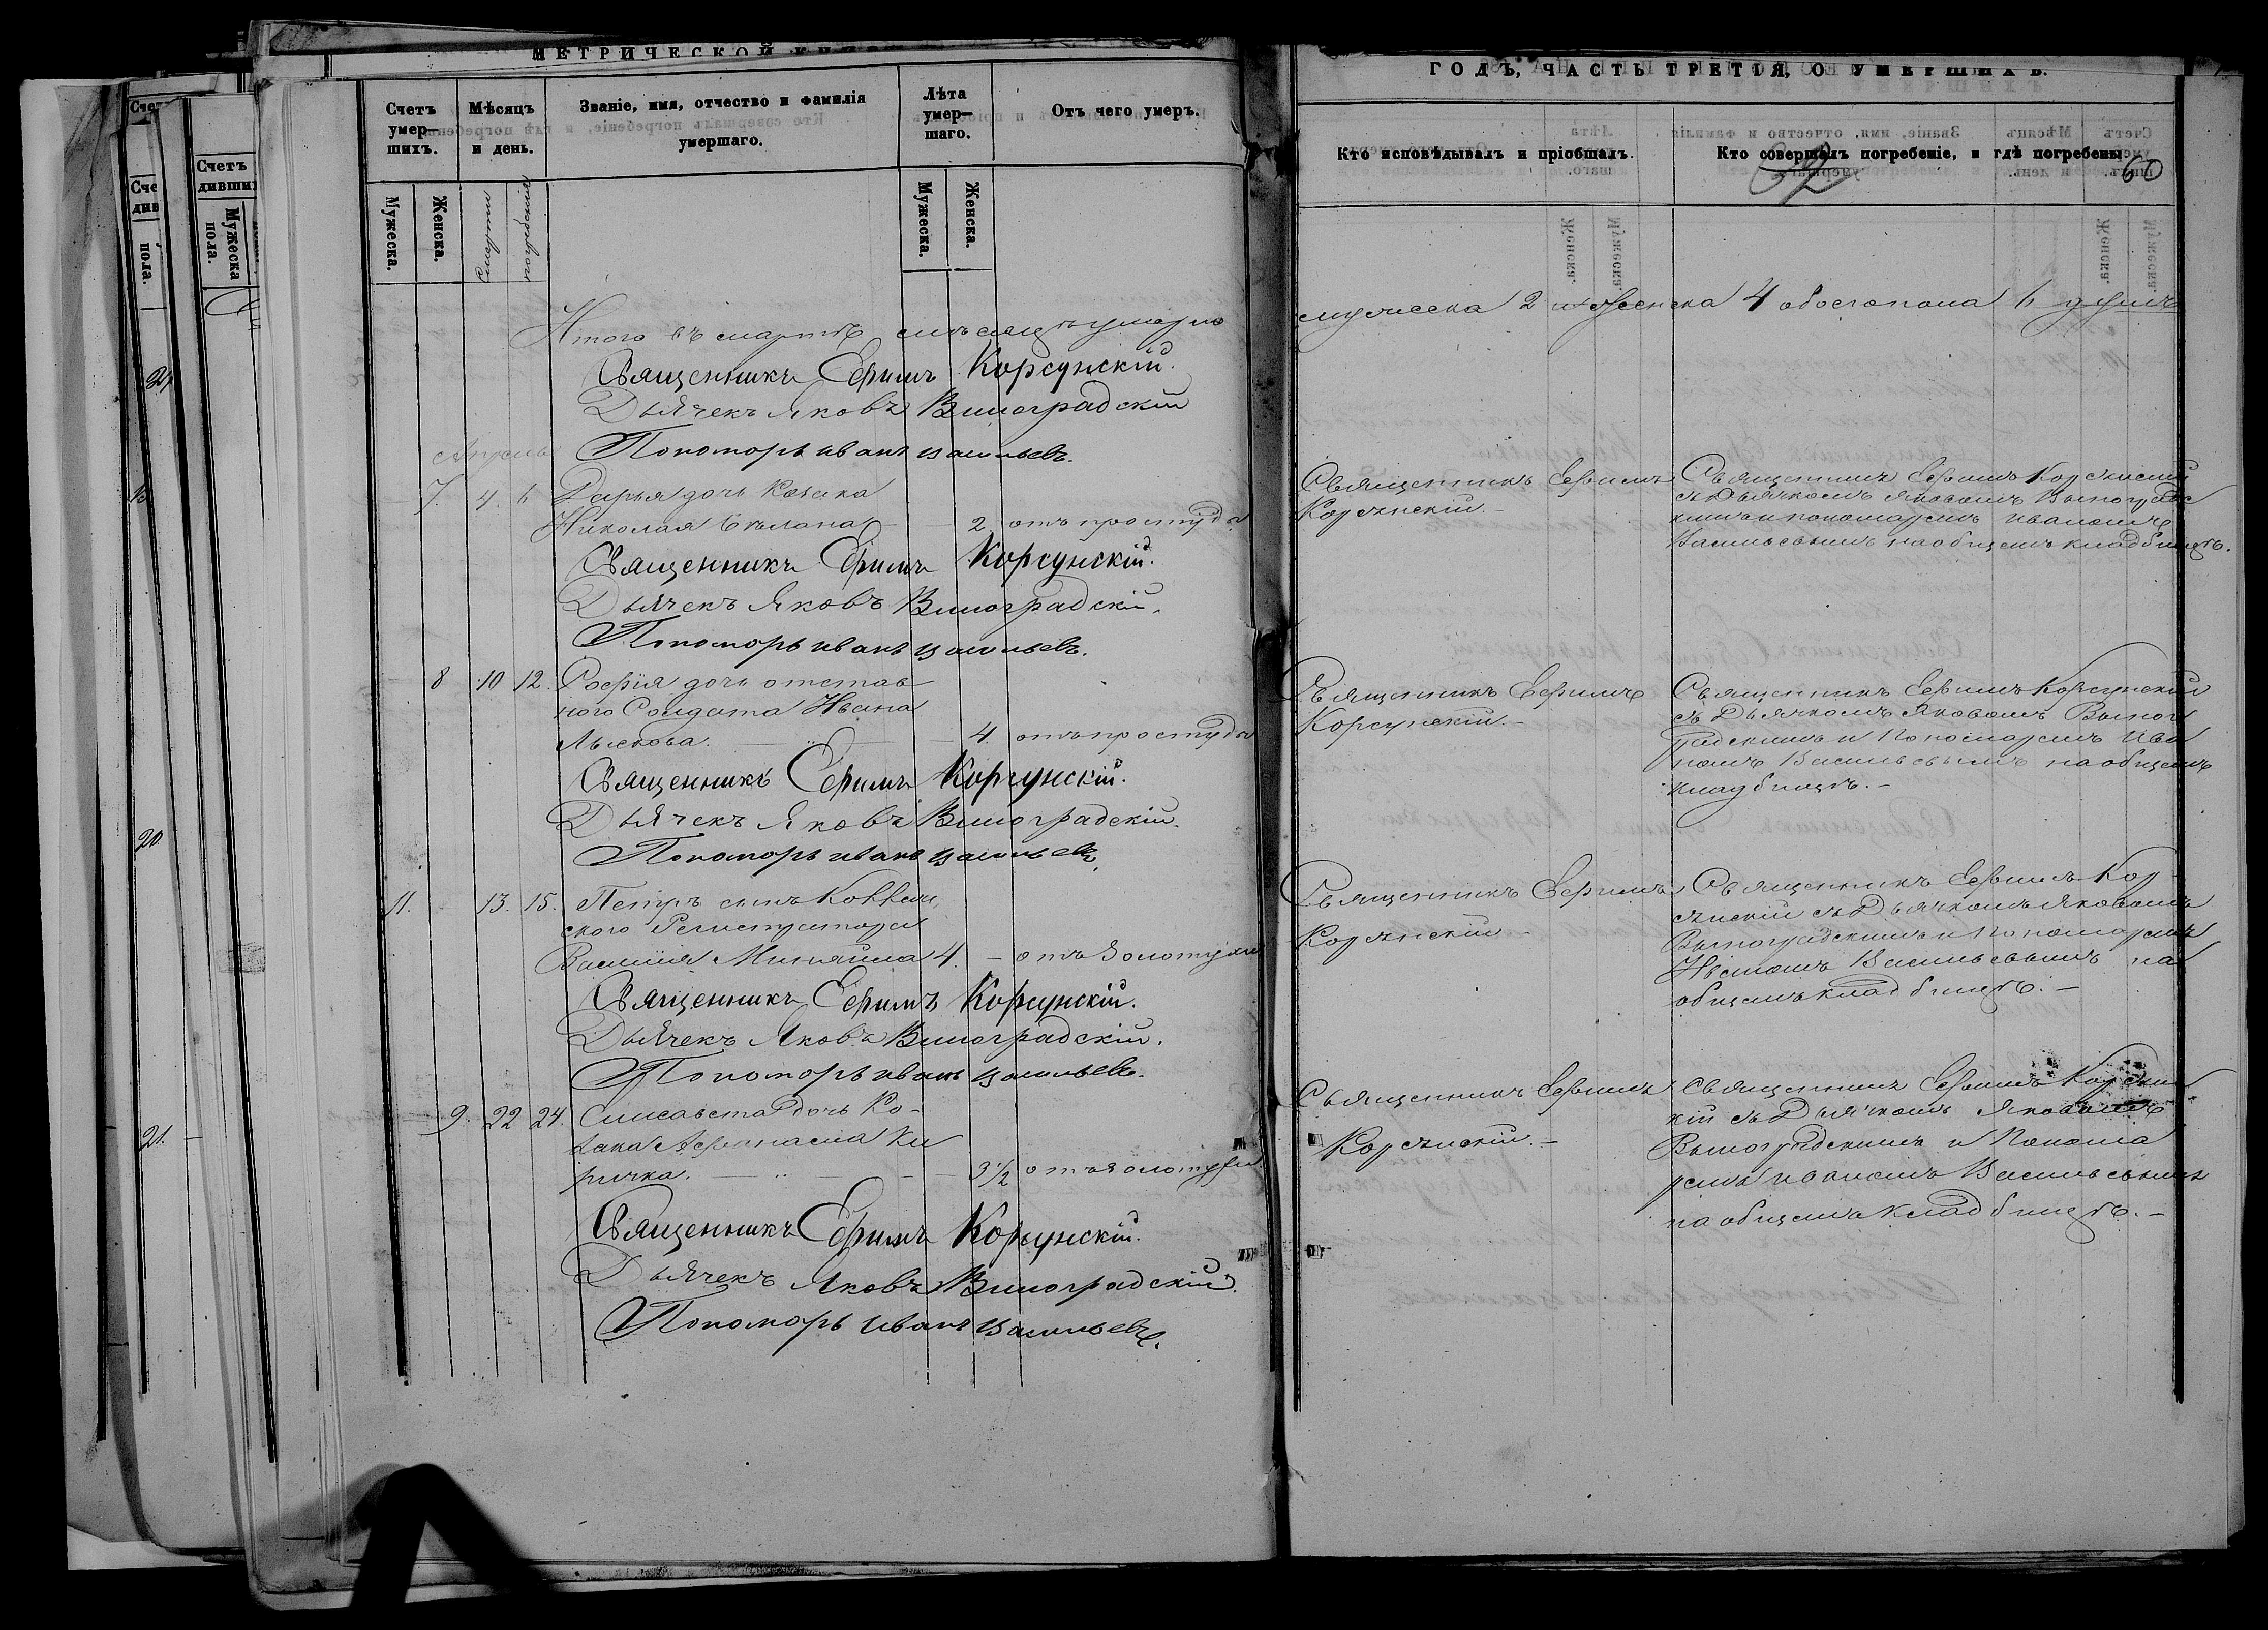 МЕТРИЧЕСКОЙ
Счетъ умер-шихъ.
Мѣсяцъ и день.
Званіе, имя, отчество и фамилія умершаго.
Лѣта умер-шаго.
Отъ чего умеръ.
Мужеска.
Женска.
смерти
погребенія
Мужеска.
Женска.
Итого въ мартѣ мѣсяцѣ умерло
Священникъ Ефимъ Корсунскій.
Дьячекъ Яковъ Виноградскій
Пономорь иванъ васильевъ.
Апрель
7. 4. 6 Дарья дочь Козака
Николая 2 отъ простуды
Священникъ Ефимъ Корсунскій.
Дьячекъ Яковъ Виноградскій.
Пономорь иванъ васильевъ.
8 10 12. Софія дочь отстав
ного Солдата Ивана
Лыскова. 4. отъ простуды
Священникъ Ефимъ Корсунскій.
Дьячекъ Яковъ Виноградскій.
Пономорь иванъ васильевъ.
11. 13. 15. Петръ сынъ
ского Регистратора
Василія 4. - отъ Золотухи
Священникъ Ефимъ Корсунскій.
Дьячекъ Яковъ Виноградскій.
Пономорь иванъ васильевъ.
9. 22 24. Елисавета дочь Ко-
зака Афанасія Ки
рички. 3 1/2 отъ золотухи
Священникъ Ефимъ Корсунскій.
Дьячекъ Яковъ Виноградскій.
Пономорь иванъ васильевъ.
ГОДЪ, ЧАСТЬ ТРЕТІЯ, О УМЕРШИХЪ.
Кто исповѣдывалъ и пріобщалъ.
Кто совершалъ погребеніе, и гдѣ погребены.
60
мужеска 2 женска 4 обоего пола 6 душъ
Священникъ Ефимъ
Корсунскій.-
Священникъ Ефимъ Корсунскій
съ Дьячкомъ Яковомъ Виноградс
кимъ и пономаремъ Иваномъ
Васильевымъ на общемъ кладбищѣ.
Священникъ Ефимъ
Корсунскій.-
Священникъ Ефимъ Корсунскій
съ Дьячкомъ Яковомъ Виног
радскимъ и Пономаремъ Ива
номъ Васильевымъ на общемъ
кладбищѣ.-
Священникъ Ефимъ
Корсунскій -
Священникъ Ефимъ Кор-
сунскій съ Дьячкомъ Яковомъ
Виноградскимъ и Пономаремъ
Иваномъ Васильевымъ на
общемъ кладбищѣ.-
Священникъ Ефимъ
Корсунскій.-
Священникъ Ефимъ Корсунс
кій съ Дьячкомъ Яковомъ
Виноградскимъ и Понома
ремъ Иваномъ Васильевымъ
на общемъ кладбищѣ.-
Счетъ
Мужеска пола.
пола.
20.
21.